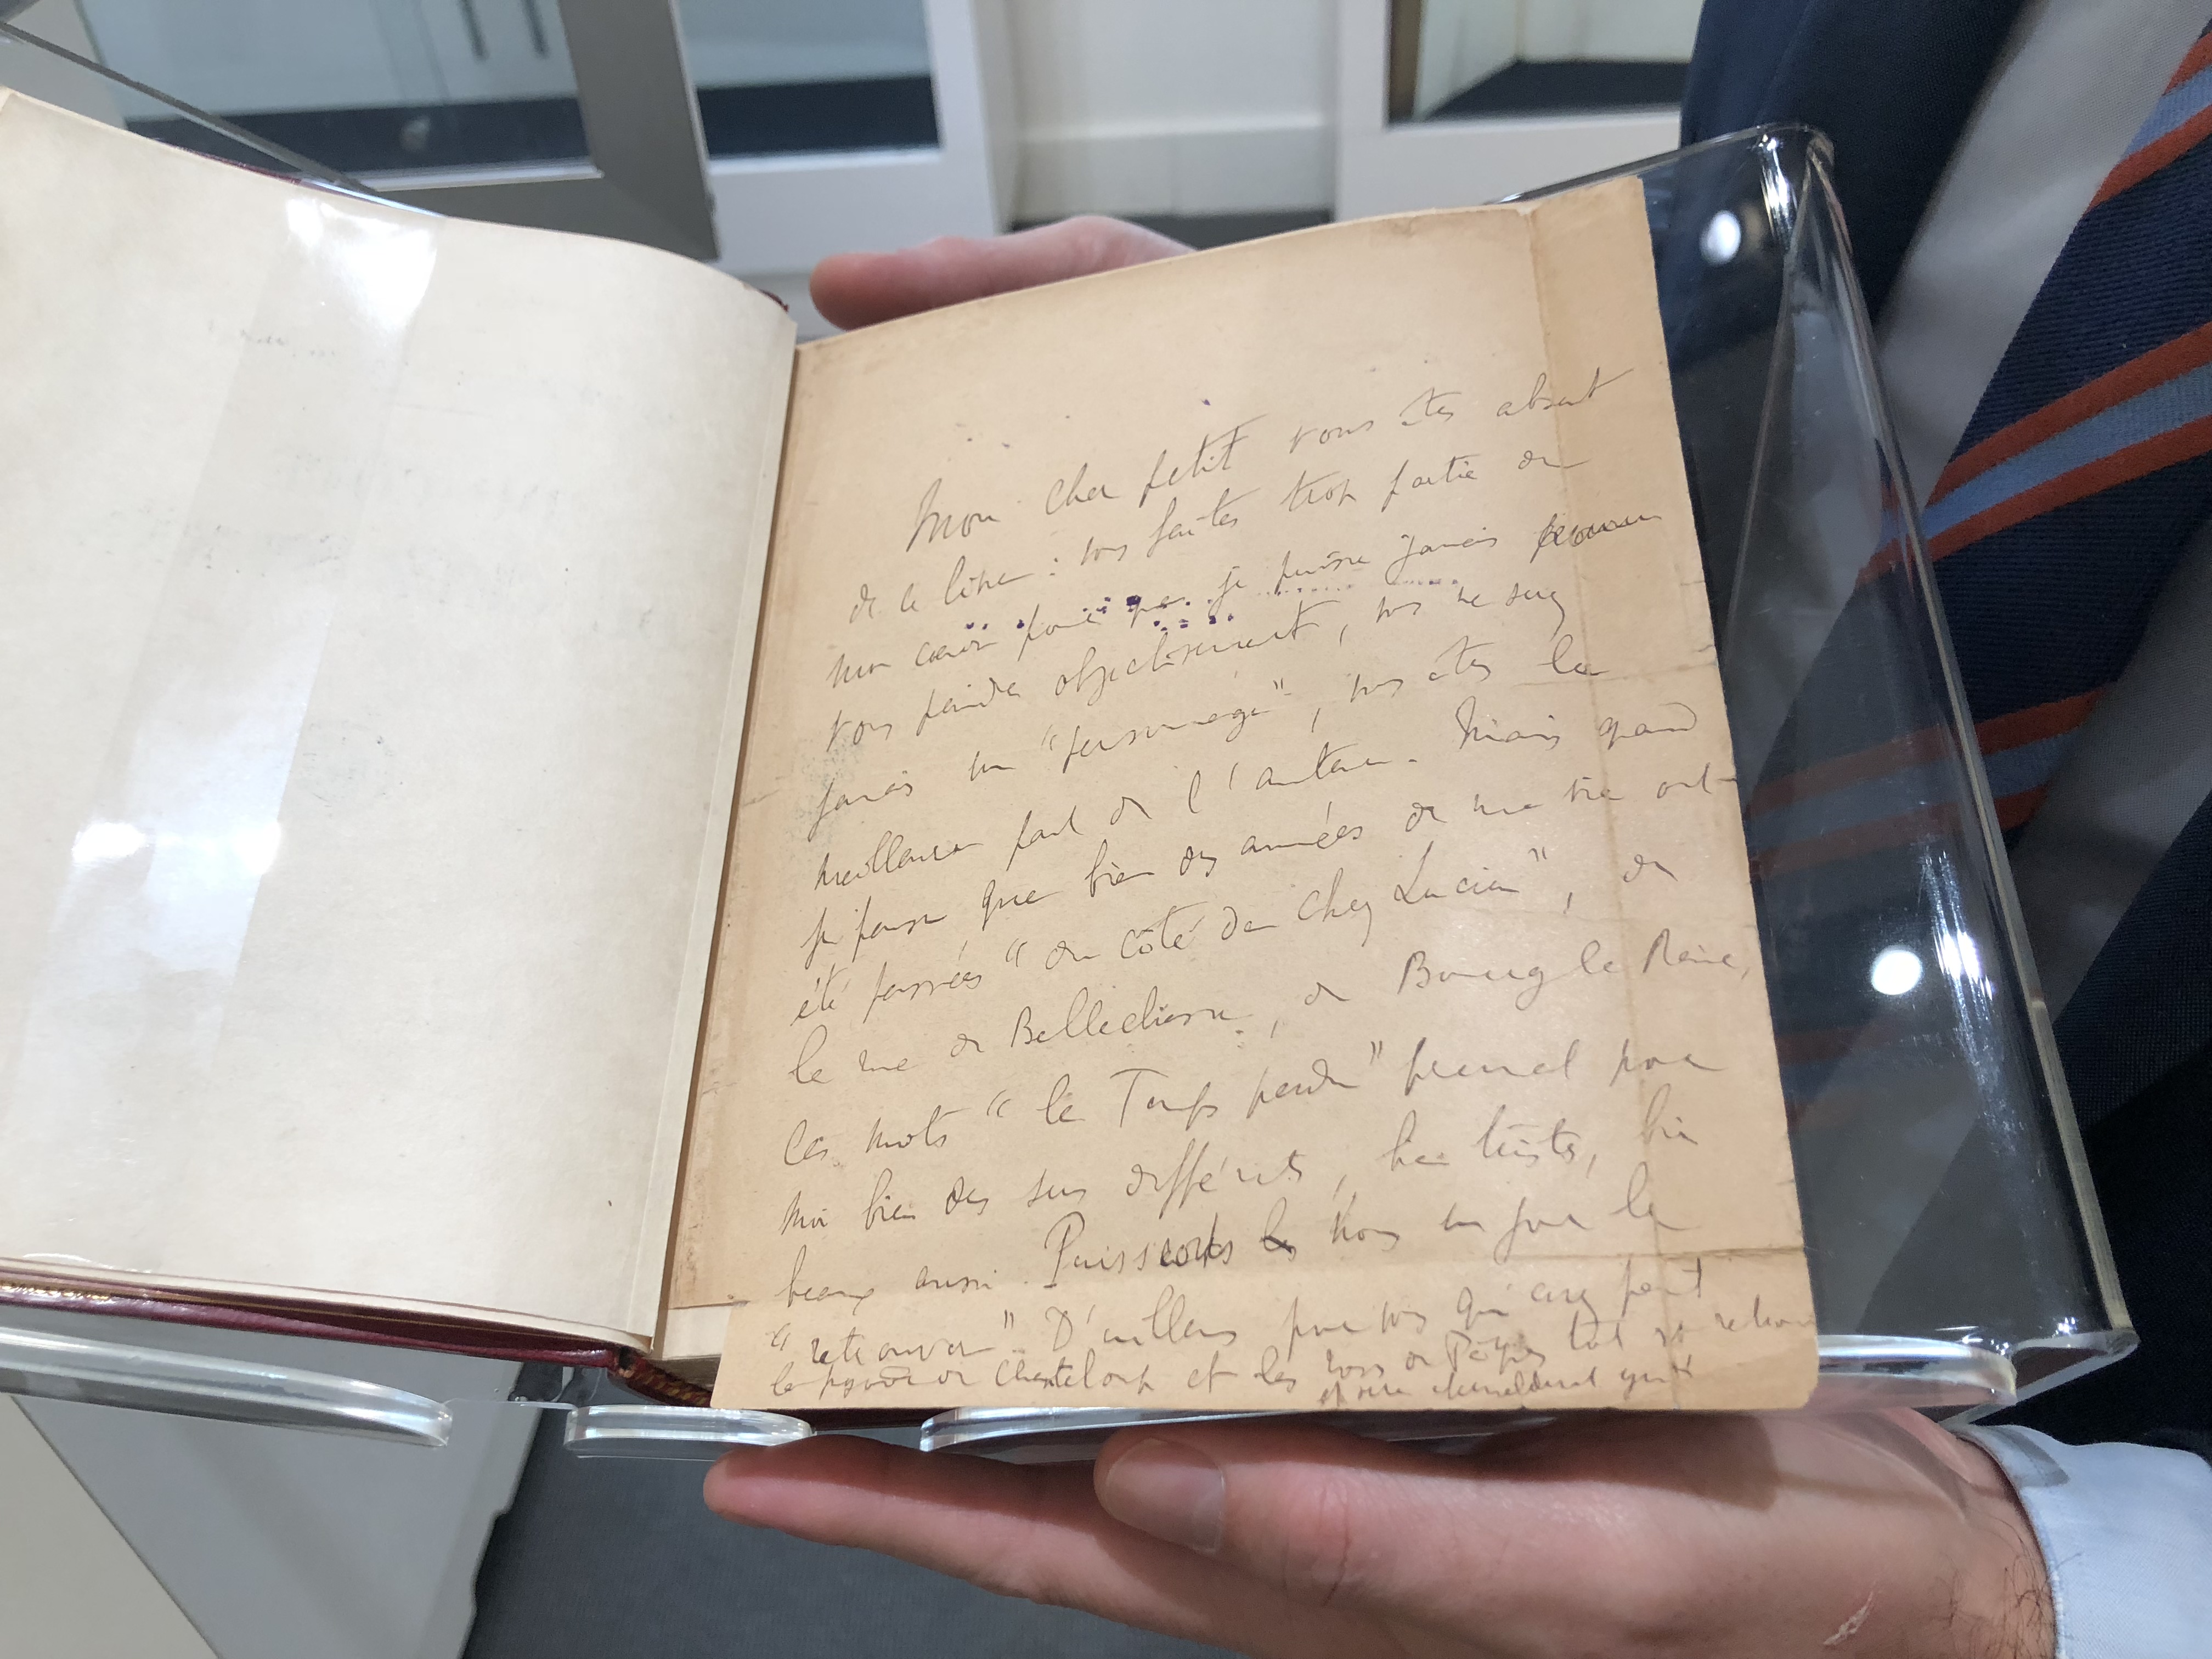 Mon cher petit vous êtes absent
de ce livre : vous faites trop partie de
mon cœur pour que je puisse jamais
vous peindre objectivement, vous ne serez
jamais un "personnage", vous êtes la
meilleure part de l'auteur. Mais quand
je pense que bien des années de ma vie ont
été passées "du côté de chez Lucien", de
la rue de Bellechasse, de Bourg la Reine,
les mots "le Temps perdu" prennent pour
moi bien des sens différents, bien tristes, bien
beaux aussi. Puissions nous un jour le
"retrouver". D'ailleurs pour vous qui avez peint
la pagode de Chanteloup et les de tout se
et sera